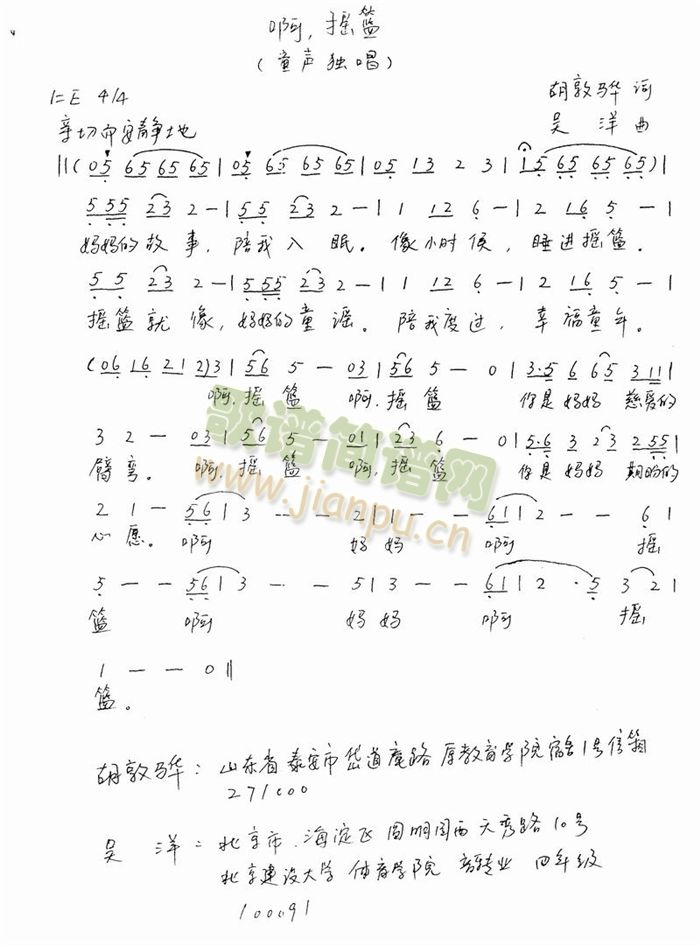 啊，摇篮
（童声独唱）
1=E 4/4
胡敦骅 词
亲切而安静地
吴 洋 曲
||(05 65 65 65|05 65 65 65|05 13 2 3|15 65 65 65)|
5 55 23 2 -|55 23 2 -|1 12 6 -|2 16 5 -|
妈妈的故事，陪我入眠。像小时候，睡进摇篮。
55 23 2 -|5 55 23 2 -|1 12 6 -|2 16 5 -|
摇篮就像，妈妈的童谣。陪我度过，幸福童年。
(06 16 21 2)3|56 5 - 03|56 5 - 0|3·5 6 65 311|
啊，摇篮 啊，摇篮 你是妈妈 慈爱的
3 2 - 03|56 5 - 01|23 6 - 0|5·6 3 23 255|
臂弯。啊，摇篮 啊，摇篮 你是妈妈 期盼的
2 1 - 561|3 - - 2|1 - - 611|2 - - 6|
心愿。 啊 妈妈 啊 摇
5 - - 561|3 - - 5|3 - - 611|2 - · 5 3 2|
篮 啊 妈妈 啊 摇
1 - - 0||
篮。
歌谱简谱网
www.jianpu.cn
胡敦骅：山东省泰安市岱道庵路原教育学院宿舍1号信箱
271000
吴 洋：北京市海淀区圆明园西 天秀路10号
北京建设大学 体育学院 专业 四年级
100091